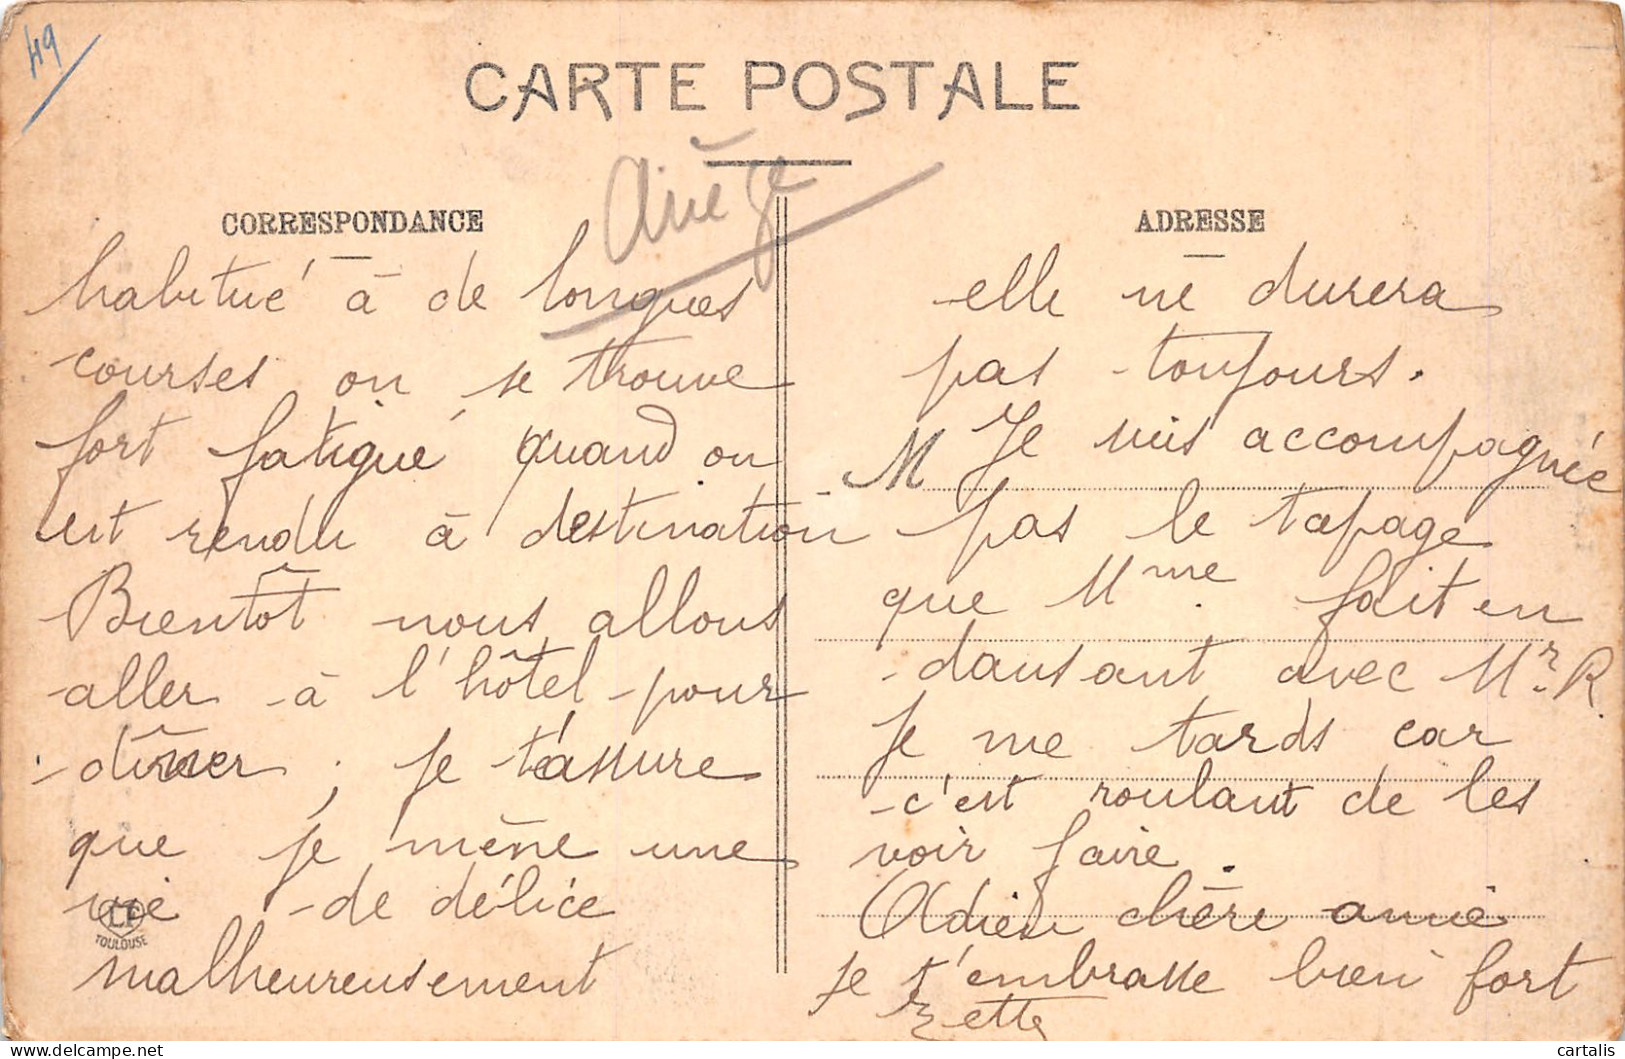 49
CARTE POSTALE
Ariège
CORRESPONDANCE
habitué à de longues
courses on se trouve
fort fatigué quand on
est rendu à destination
Bientôt nous allons
aller à l'hôtel pour
dîner ; je t'assure
que je mène une
vie de délice
malheureusement
LF
TOULOUSE
ADRESSE
elle ne durera
pas toujours.
M Je suis accompagnée
pas le tapage
que Mme. fait en
dansant avec Mr. R.
Je me tards car
c'est roulant de les
voir faire.
Adieu chère amie
Je t'embrasse bien fort
cartalis